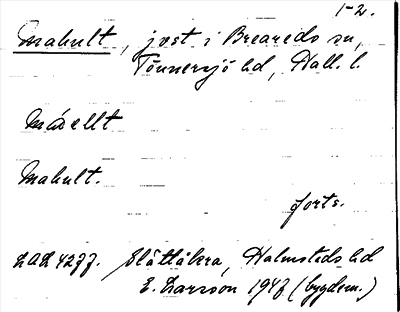 1-2.
Mahult, jost. i Breareds sn,
Tönnersjö hd, Hall. l.
Mahult.
forts.
Slättåkra, Halmstads hd
E. Larsson 1947 (bygdem.)